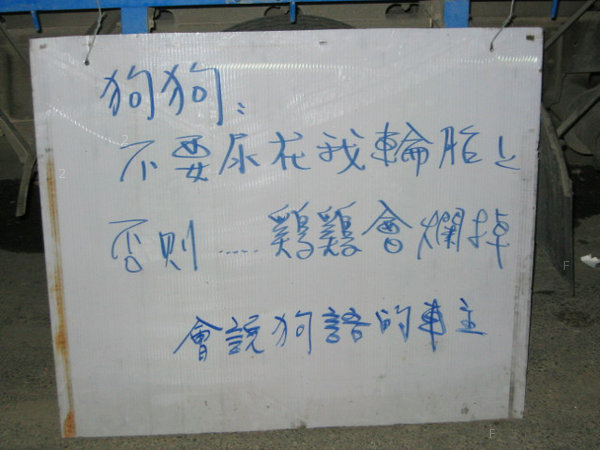 狗狗：
不要尿在我輪胎上
否則......鷄鷄會爛掉
會說狗語的車主